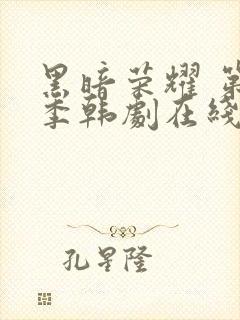 黑暗荣耀 第
季韩劇在綫
孔星隆